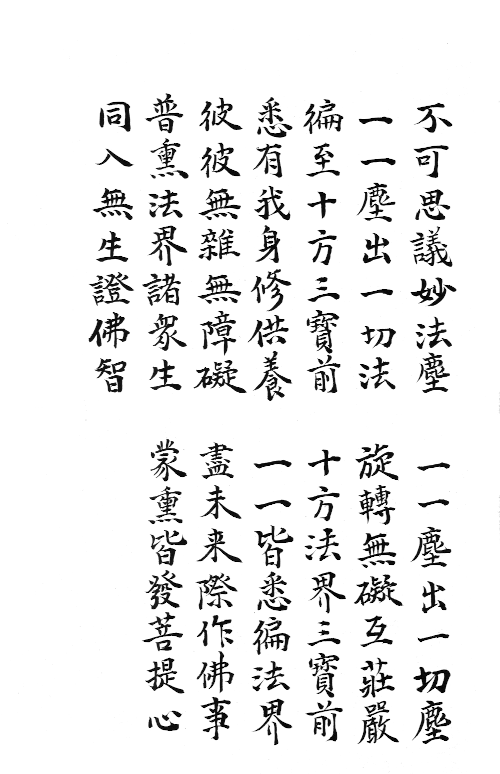 不可思議妙法塵 一一塵出一切塵
一一塵出一切法 旋轉無礙互莊嚴
徧至十方三寶前 十方法界三寶前
悉有我身修供養 一一皆悉徧法界
彼彼無雜無障礙 盡未来際作佛事
普熏法界諸眾生 蒙熏皆發菩提心
同入無生證佛智